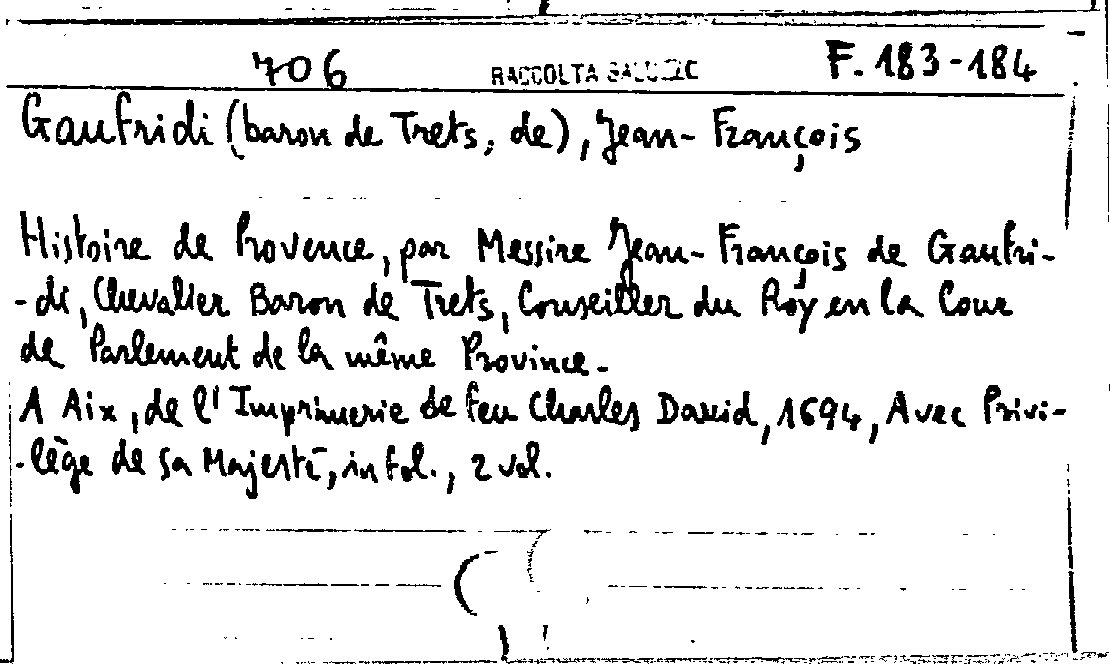 706 RACCOLTA F. 183-184
Gaufridi (baron de Trets, de), Jean-François
Histoire de Provence, par Messire Jean-François de Gaufri-
-di, Chevalier Baron de Trets, Conseiller du Roy en la Cour
de Parlement de la même Province.
A Aix, de l'Imprimerie de feu Charles David, 1694, Avec Privi-
-lège de sa Majesté, in fol., 2 vol.